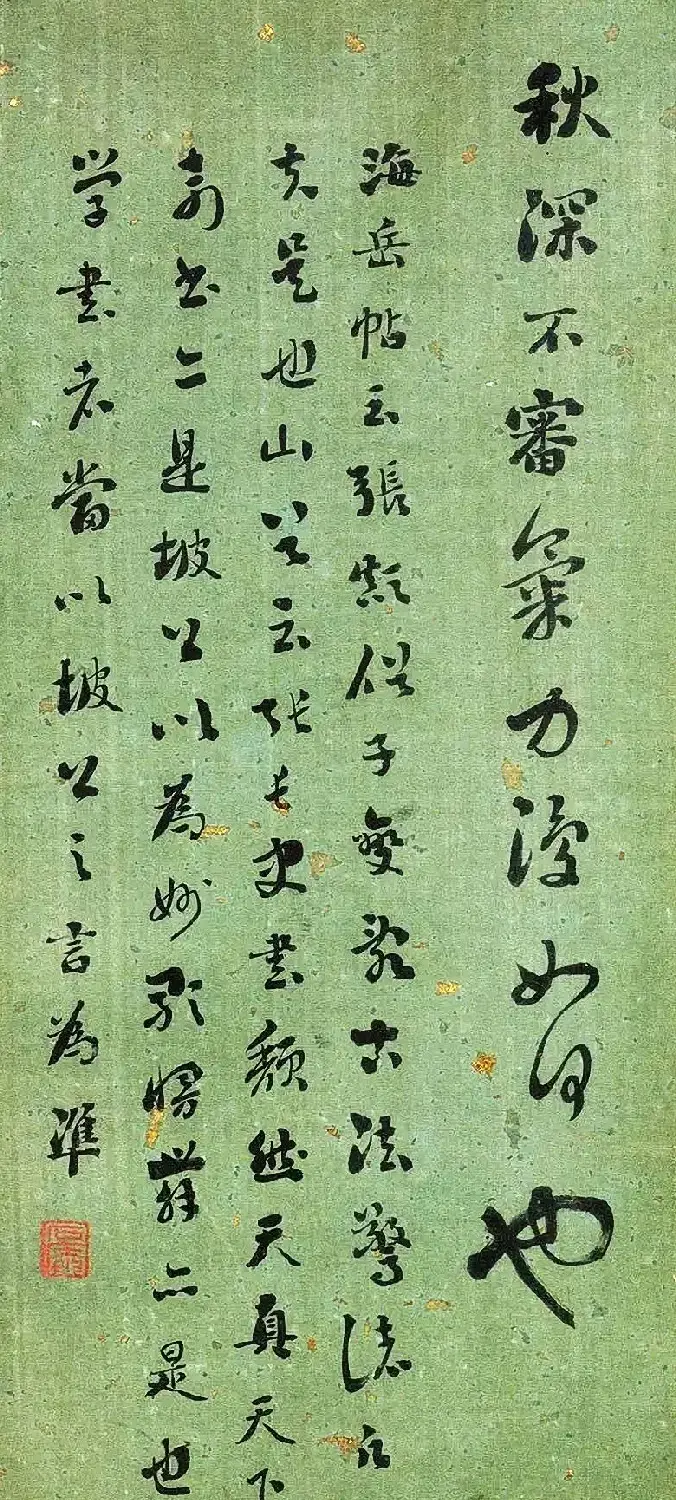 秋深不審氣力復如何也
海岳帖云張顛俗子變亂古法驚諸凡
夫是也山谷云張長史書頹然天真天下
奇書是坡公以為妙亦是也
学書者當以坡公之言為準